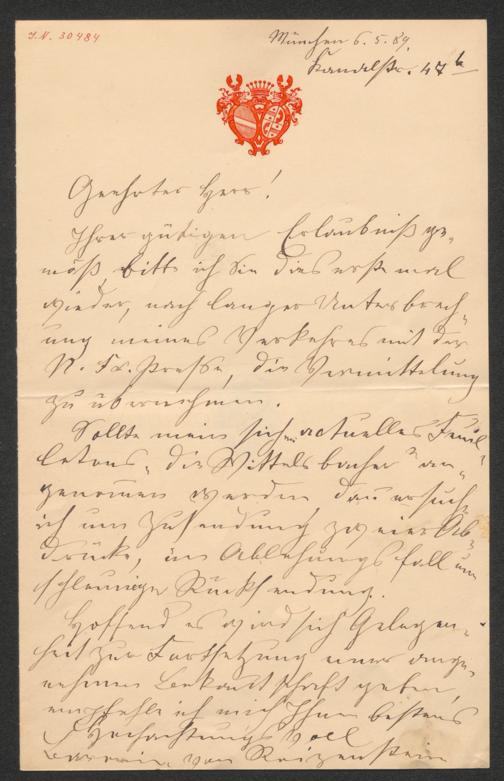 I.N. 30484
München 6. 5. 89.
Kanalstr. 47 b
Geehrter Herr!
Ihrer gütigen Erlaubniß ge„
mäß bitte ich Sie dies erste mal
wieder, nach langer Unterbrech„
ung meines Verkehres mit der
N. Fr. Presse, die Vermittelung
zu übernehmen.
Sollte mein actuelles Feuil„
letons „die Wittelsbacher" an„
genommen werden dann ersuche
ich um Zusendung zweier Ab„
drücke, im Ablehungsfall um
schleunige Rücksendung.
Hoffend es wird sich Gelegen„
heit zur Fortsetzung einer ange„
nehmen Bekantschaft geben,
empfehle ich mich Ihnen bestens
Hochachtungsvoll
von Reizenstein